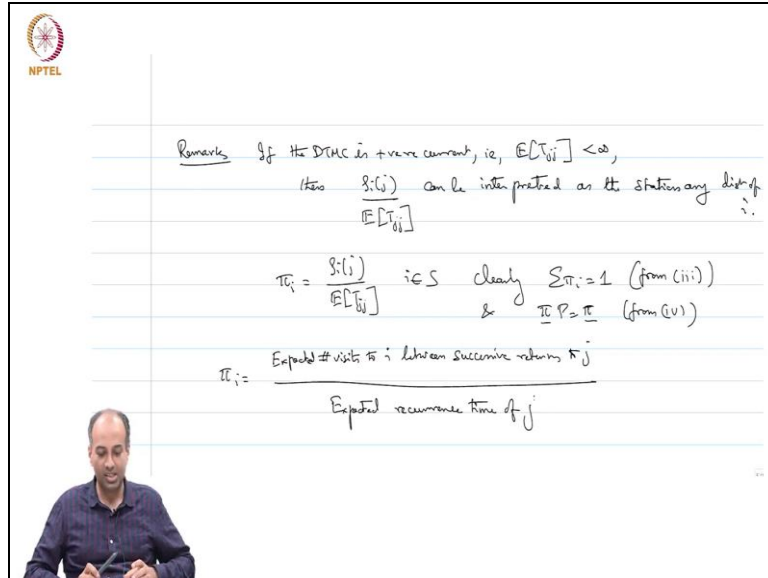 NPTEL
Remarks If the DTMC is +ve recurrent, ie, E[T_jj] < ∞,
then ρ_i(j) / E[T_jj] can be interpreted as the stationary distn of i.
π_i = ρ_i(j) / E[T_jj] i∈S clearly Σπ_i = 1 (from (iii))
& π P = π (from (iv))
π_i = Expected # visits to i between successive returns to j / Expected recurrence time of j